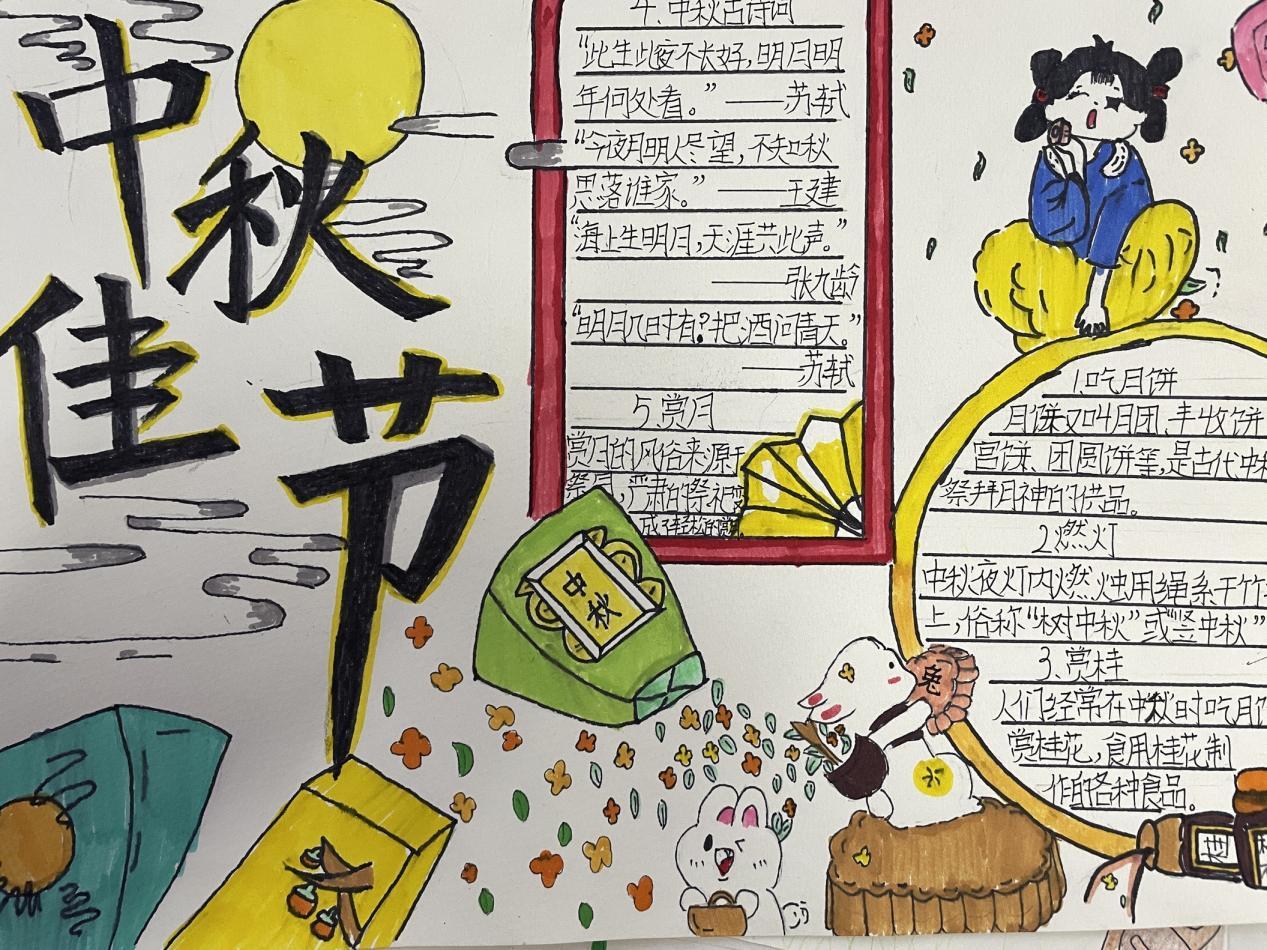 中秋
佳节
4.中秋古诗词
“此生此夜不长好，明月明
年何处看。”——苏轼
“今夜月明人尽望，不知秋
思落谁家。”——王建
“海上生明月，天涯共此声。”
——张九龄
“明月几时有？把酒问青天。”
——苏轼
5.赏月
赏月的风俗来源于
祭月，严肃的祭祀变
成了轻松的赏
中
秋
1.吃月饼
月饼又叫月团、丰收饼
宫饼、团圆饼等，是古代中秋
祭拜月神的供品。
2.燃灯
中秋夜灯内燃烛用绳系于竹
上，俗称“树中秋”或“竖中秋”
3.赏桂
人们经常在中秋时吃月饼
赏桂花，食用桂花制
作的各种食品。
兔